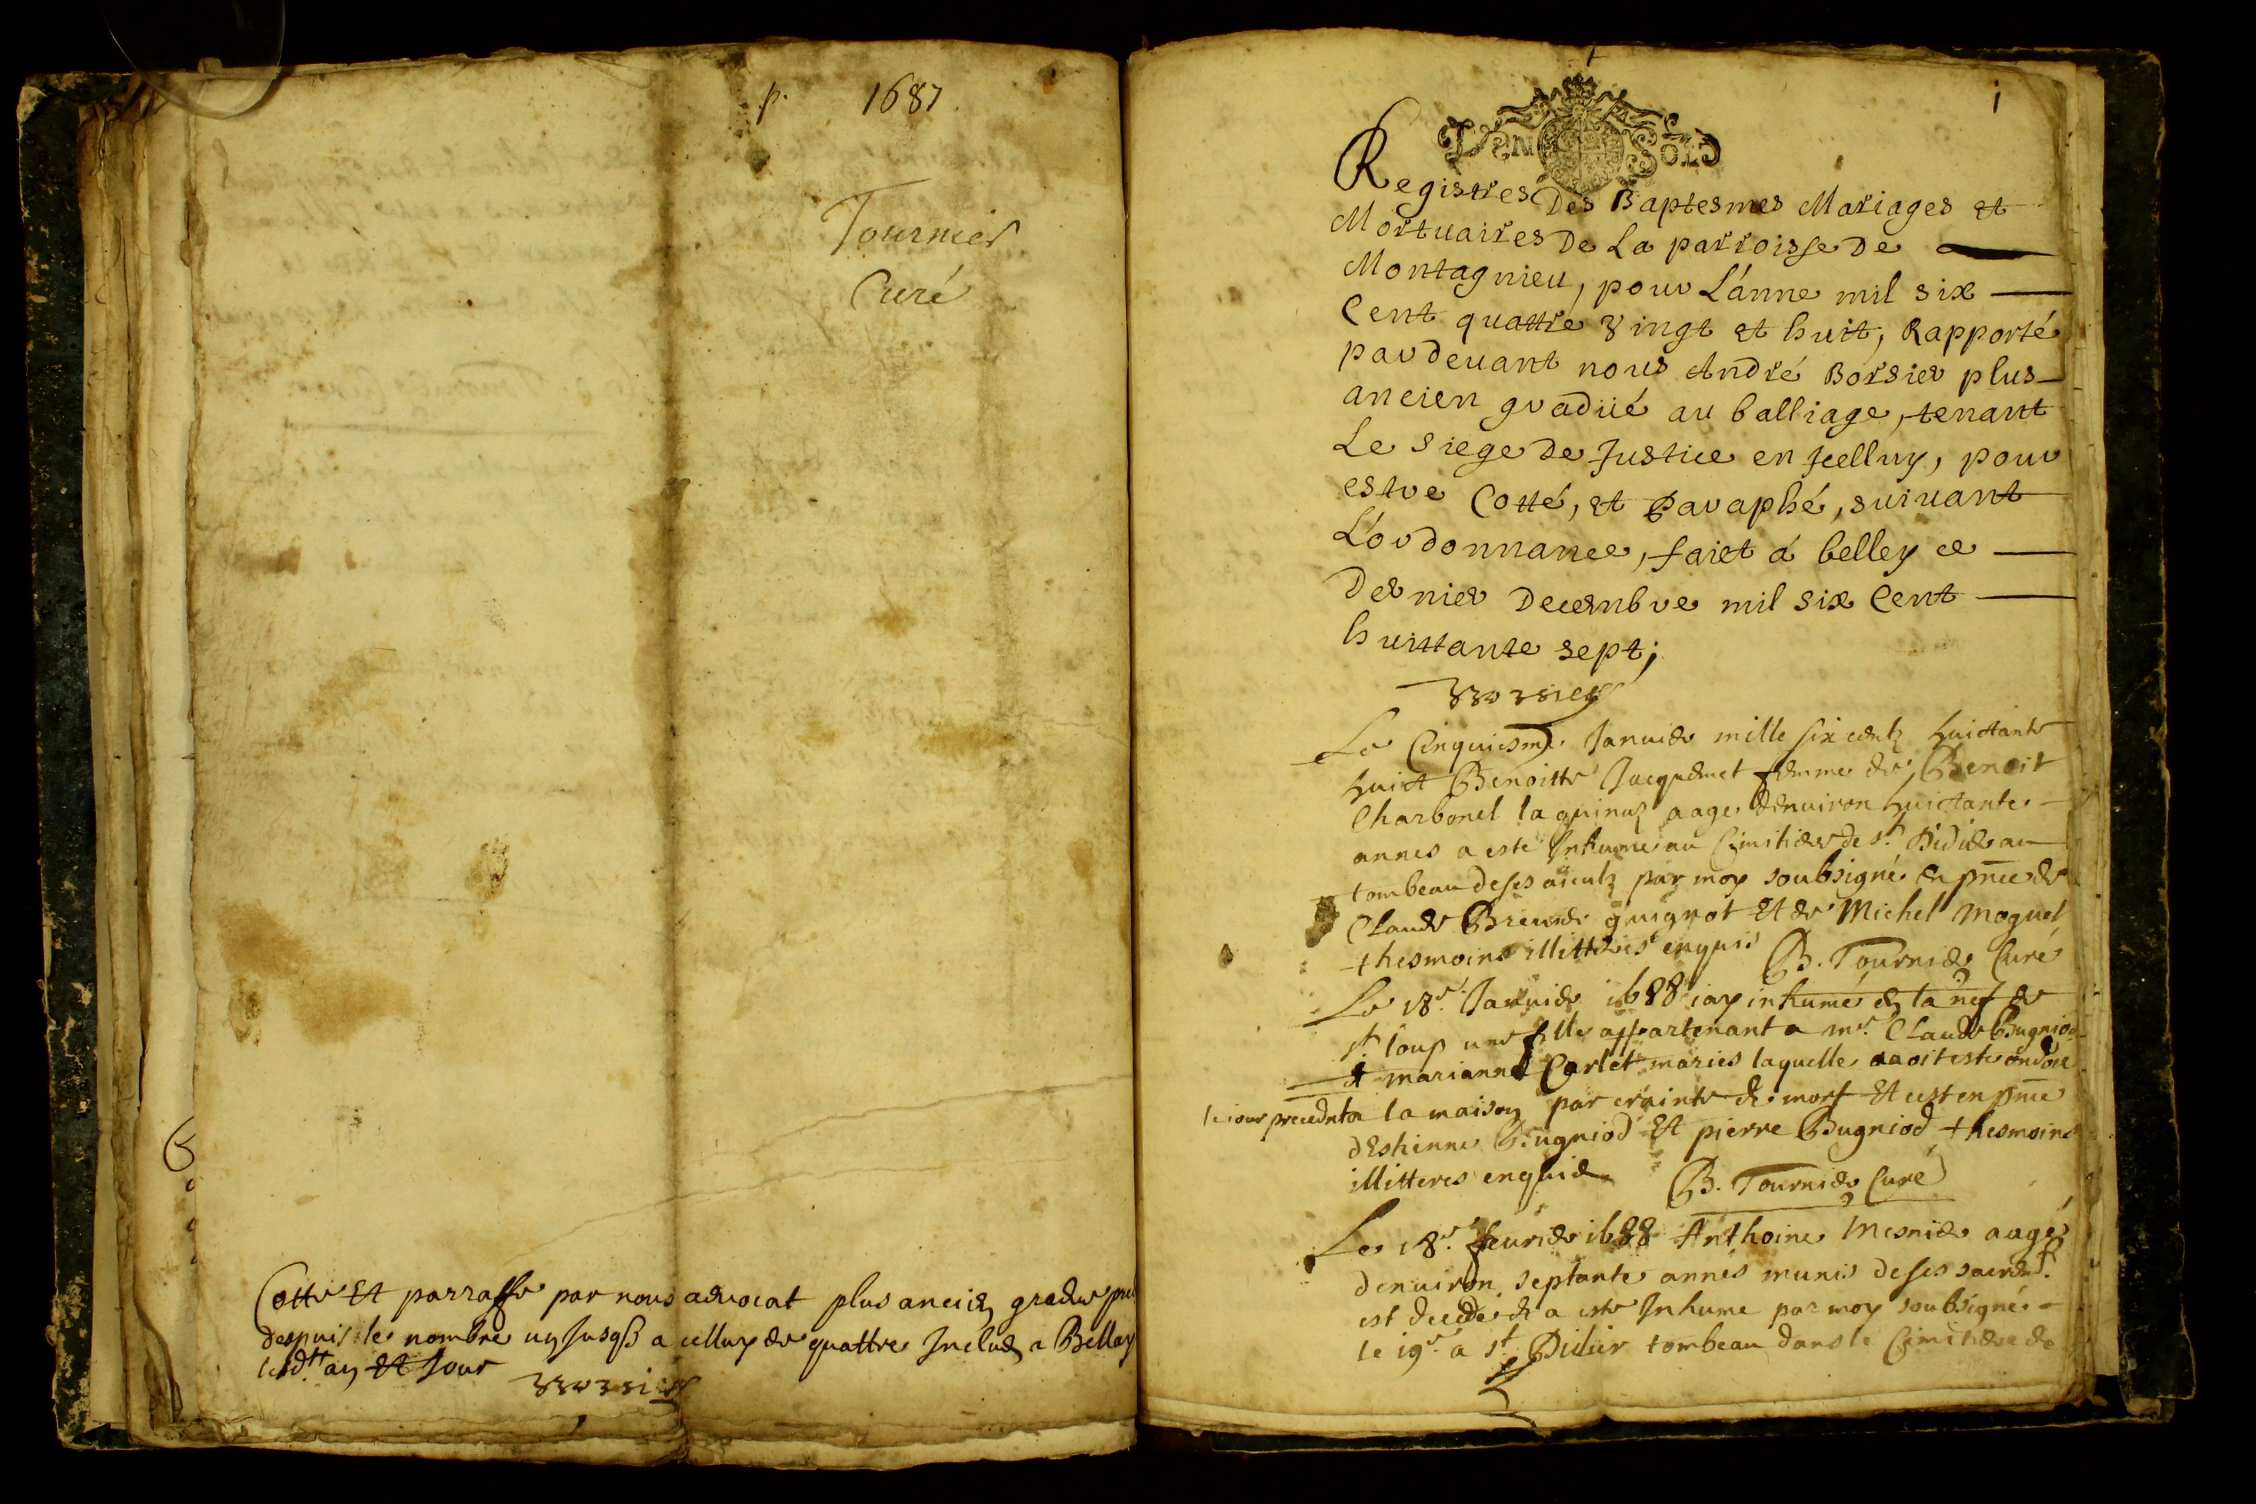 p. 1687
Tournier
Curé
Cotté Et parraffé par nous advocat plus ancien gradué
despuis le nombre un Jusqs a celluy de quattre Inclus a Belley
lesd.tt an Et Jour
Borsier
i
Deux Sols
Registres Des Baptesmes Mariages et
Mortuaires De La parroisse De
Montagnieu, pour L'anne mil six
Cent quattre vingt et huit, Rapporté
pardevant nous André Borsier plus
ancien gradüé au balliage, tenant
Le siege de Justice en Jcelluy, pour
estre Cotté, et Paraphé, suivant
L'ordonnance, faict á belley ce
Dernier Decembre mil six Cent
huittante sept;
Borsier
Le Cinquiesme Januier mille six centz huictante
huict Benoitte Jacquemet femme de Benoit
Charbonel la aage denuiron huictante
annes a esté Inhumé au Cimitier de st. Didier au
tombeau de ses aieulz par moy soubsigné en pnce de
Claude Breuier guignot Et de Michel Moguet
thesmoins illitteres enquis B. Tournier Curé
Le 18e. Januier 1688 iay inhumé en la nef de
st loup une fille appartenant a mr. Claude Bugniod
et marianne Carlet mariés laquelle auoit esté ondoie
le jour precedent a la maison par crainte de mort Et cest en pnce
dEstienne Bugniod Et pierre Bugniod thesmoins
illitteres enquis B. Tournier Curé
Le 18e. feurier 1688 Anthoine Mesnier aagé
denuiron septante annés munis de ses sacremt.
est decedé et a esté Inhume par moy soubsigné
le 19e. a st. Didier tombeau dans le Cimitiere de